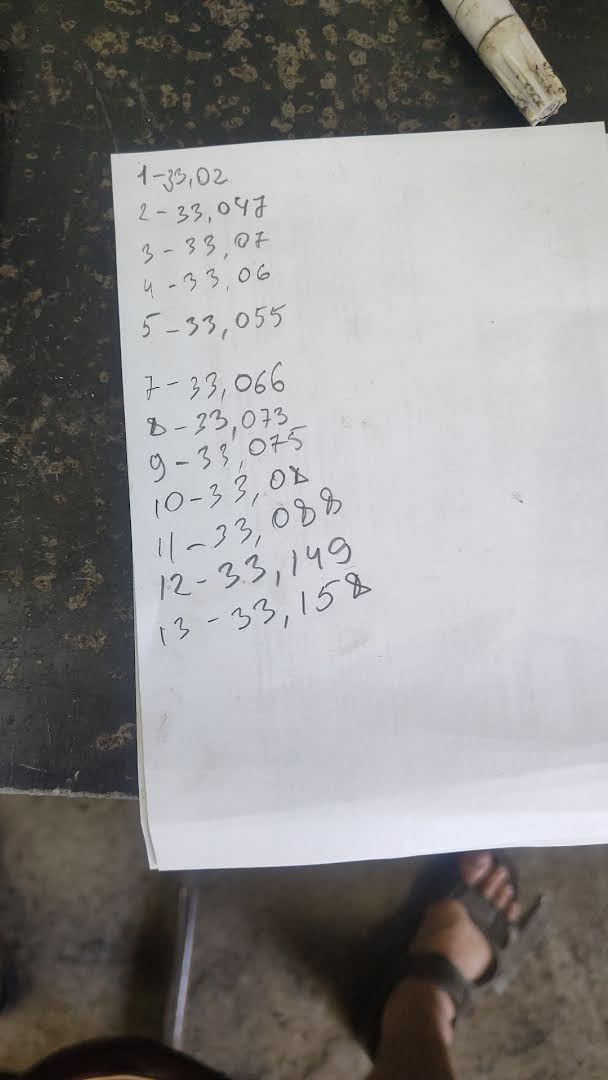 1-33,02
2-33,047
3-33,07
4-33,06
5-33,055
7-33,066
8-33,073
9-33,075
10-33,08
11-33,088
12-33,149
13-33,158